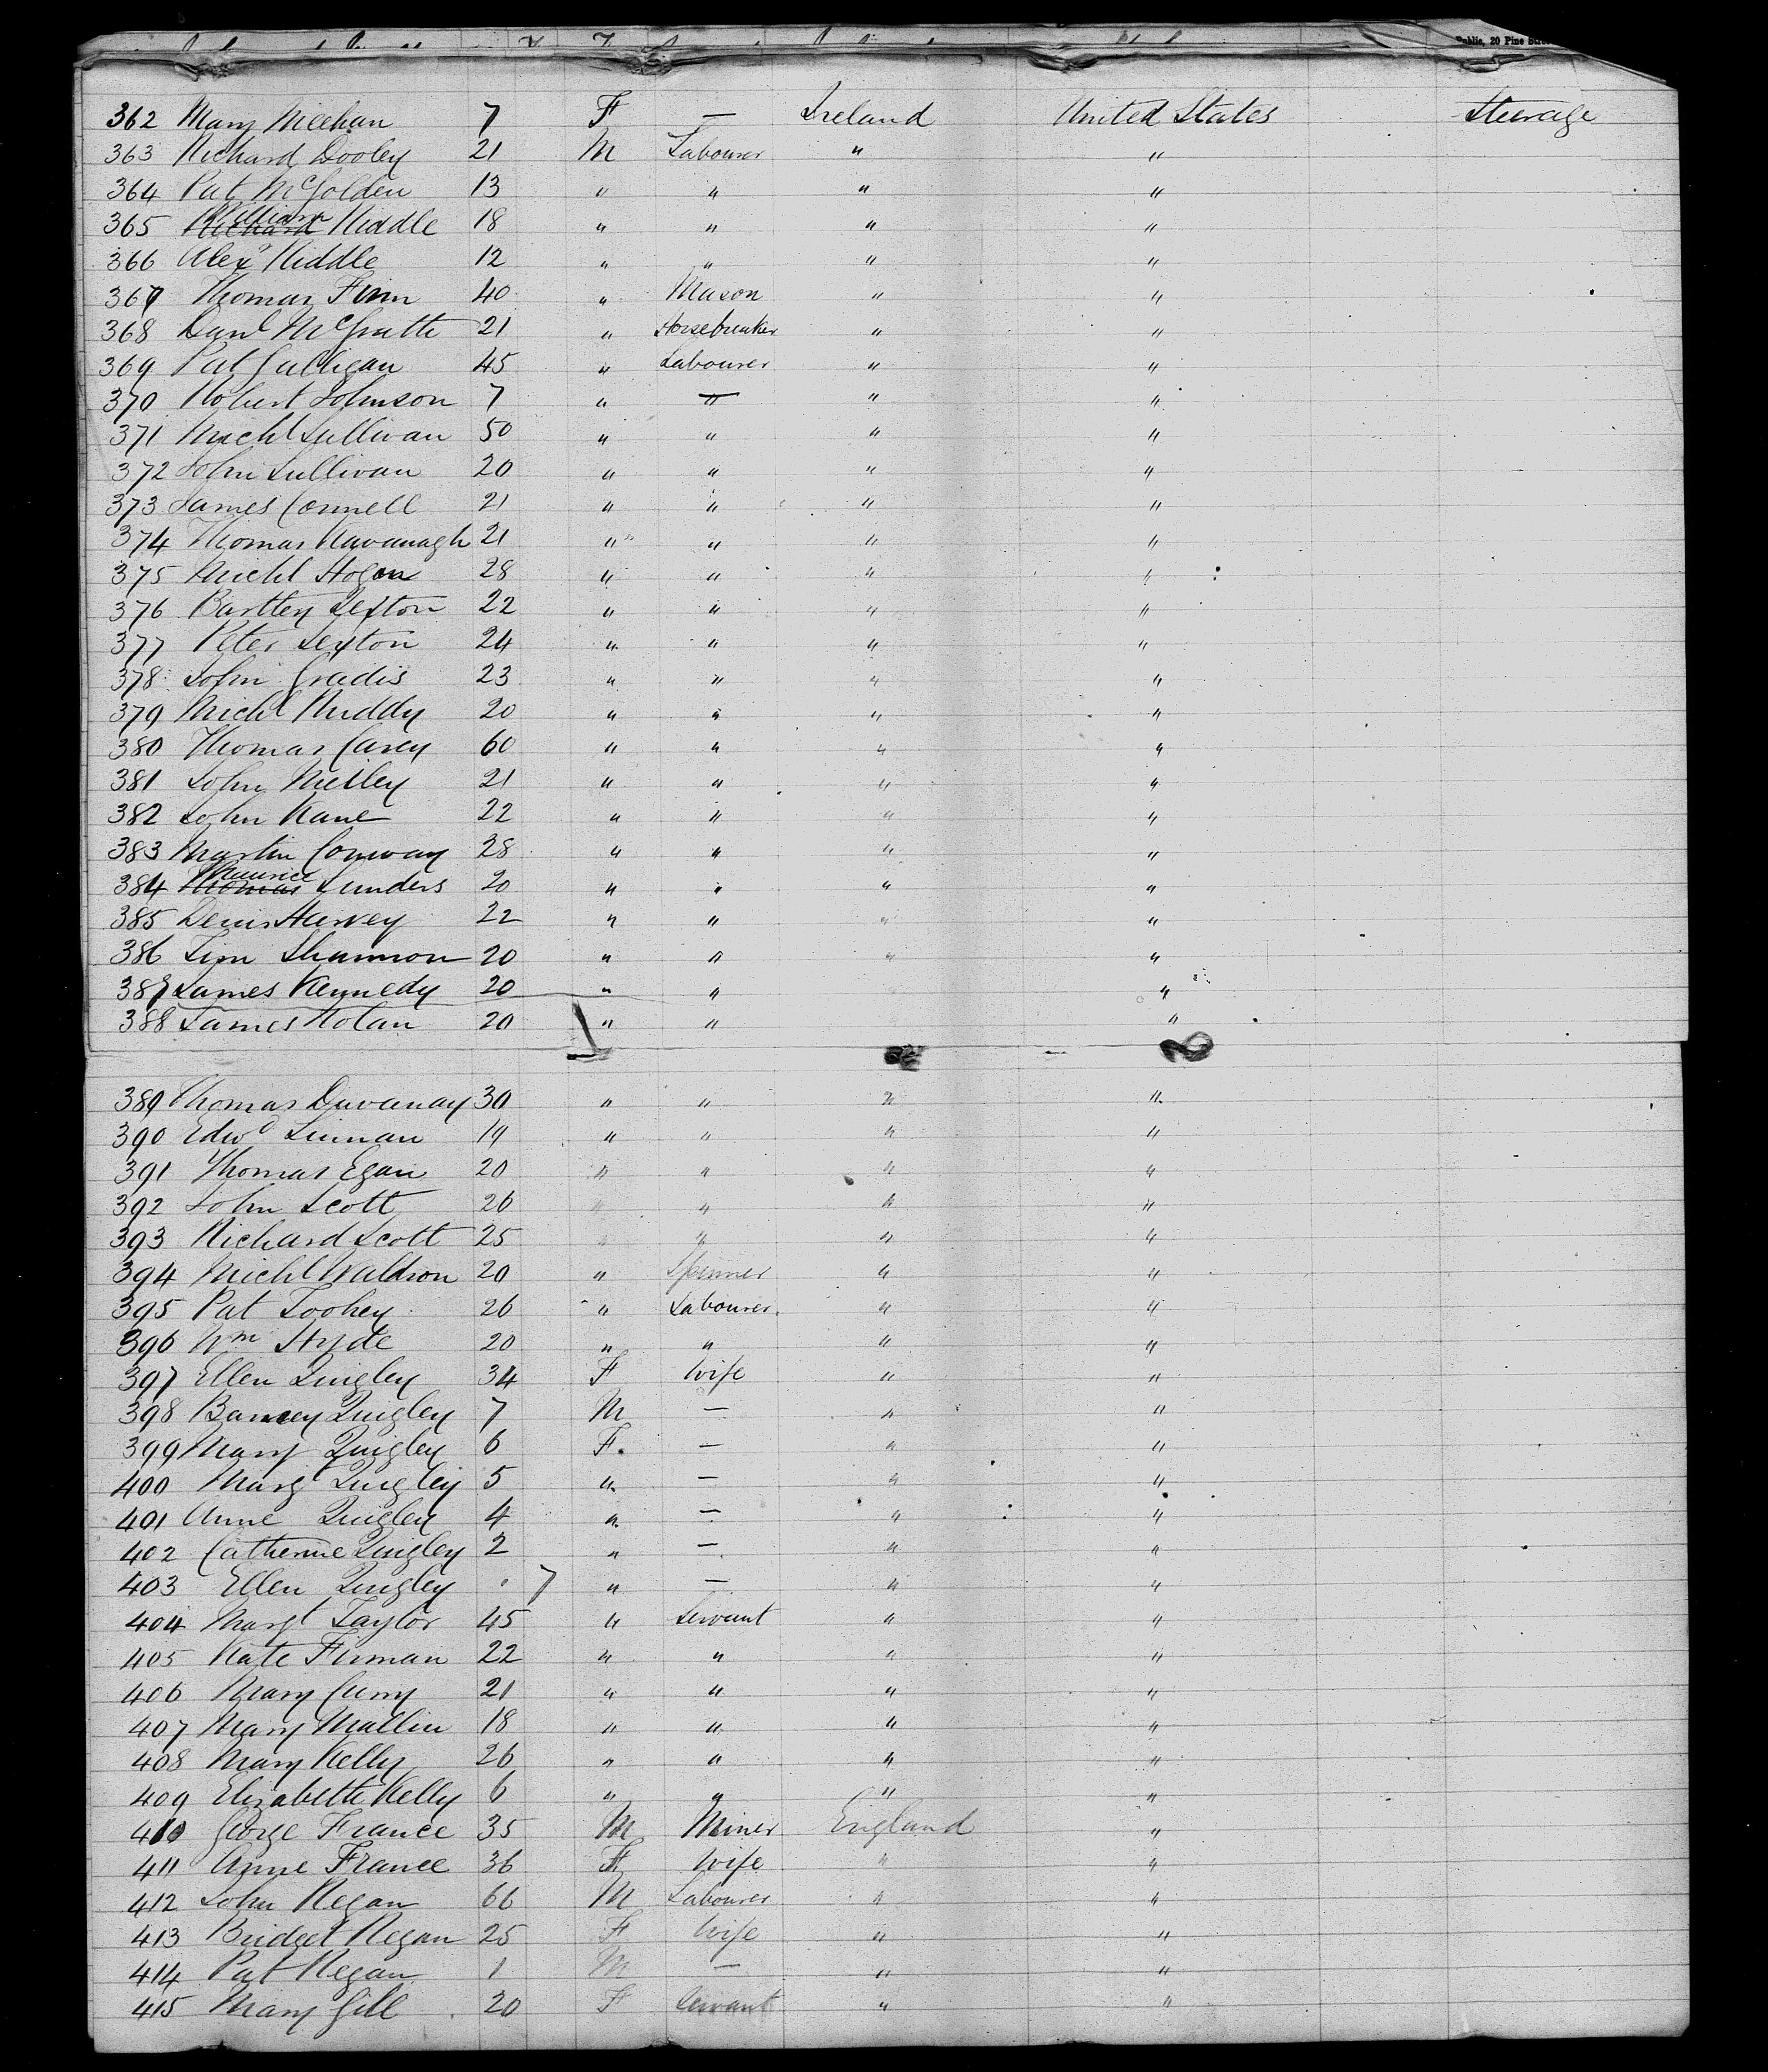 Public, 20 Pine Street
362 Mary Meehan 7 F — Ireland United States Steerage
363 Richard Dooley 21 M Labourer " "
364 Pat McGolden 13 " " " "
365 William Riddle 18 " " " "
366 Alexr Riddle 12 " " " "
367 Thomas Finn 40 " Mason " "
368 Danl McGrath 21 " Horsebreaker " "
369 Pat Galligan 45 " Labourer " "
370 Robert Johnson 7 " — " "
371 Michl Sullivan 50 " " " "
372 John Sullivan 20 " " " "
373 James Connell 21 " " " "
374 Thomas Kavanagh 21 " " " "
375 Michl Hogan 28 " " " "
376 Bartley Sexton 22 " " " "
377 Peter Sexton 24 " " " "
378 John Gradis 23 " " " "
379 Michl Ruddy 20 " " " "
380 Thomas Carey 60 " " " "
381 John Melley 21 " " " "
382 John Kane 22 " " " "
383 Martin Conway 28 " " " "
384 Maurice Sunders 20 " " " "
385 Denis Harvey 22 " " " "
386 Tim Shannon 20 " " " "
387 James Kennedy 20 " " "
388 James Nolan 20 " " "
389 Thomas Davanay 30 " " " "
390 Edwd Linnan 19 " " " "
391 Thomas Egan 20 " " " "
392 John Scott 26 " " " "
393 Richard Scott 25 " " " "
394 Michl Waldron 20 " Spinner " "
395 Pat Toohey 26 " Labourer " "
396 Wm Hyde 20 " " " "
397 Ellen Quigley 34 F Wife " "
398 Barney Quigley 7 M — " "
399 Mary Quigley 6 F — " "
400 Margt Quigley 5 " — " "
401 Anne Quigley 4 " — " "
402 Catherine Quigley 2 " — " "
403 Ellen Quigley 7 " — " "
404 Margt Taylor 45 " Servant " "
405 Kate Firman 22 " " " "
406 Mary Curry 21 " " " "
407 Mary Mallin 18 " " " "
408 Mary Kelly 26 " " " "
409 Elizabeth Kelly 6 " " " "
410 George France 35 M Miner England "
411 Anne France 36 F Wife " "
412 John Regan 66 M Labourer " "
413 Bridget Regan 25 F Wife " "
414 Pat Regan 1 M — " "
415 Mary Gill 20 F Servant " "